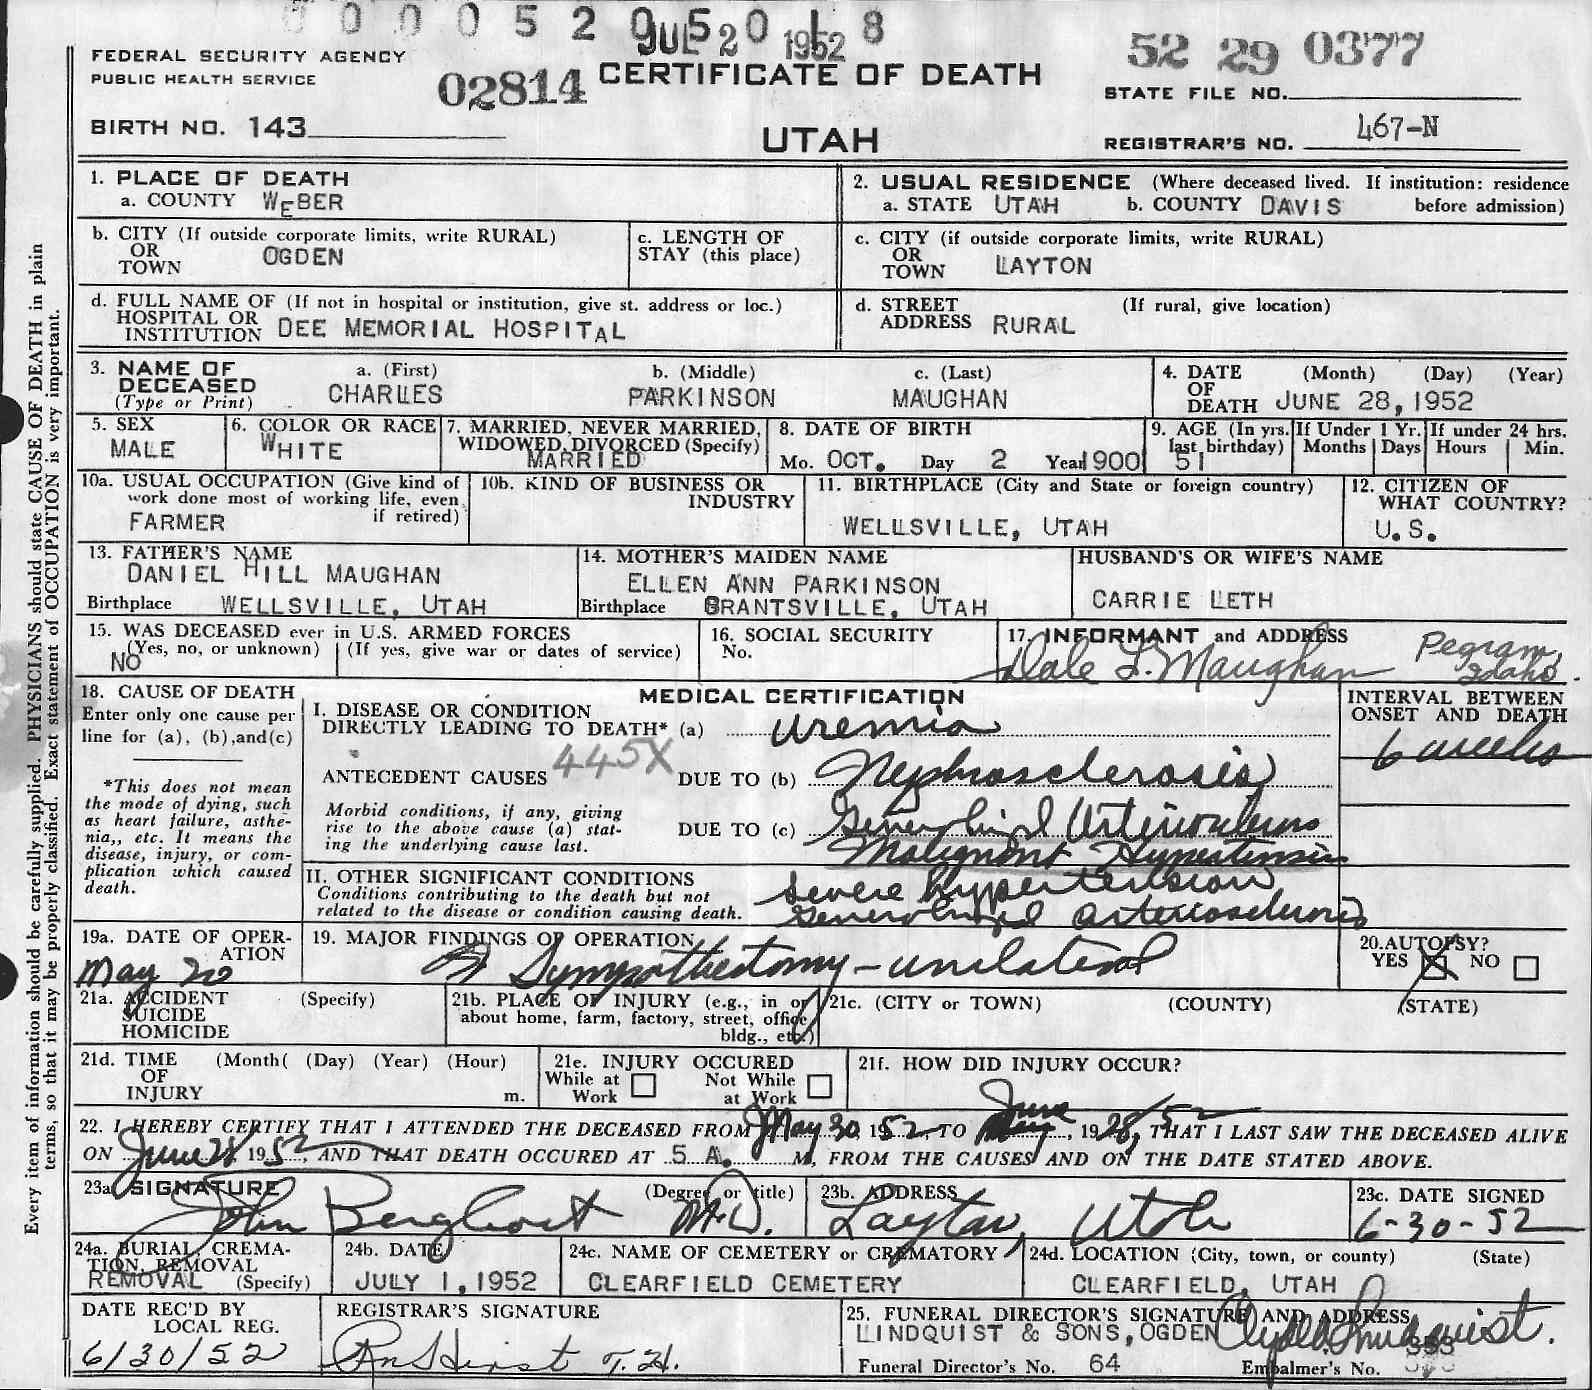 FEDERAL SECURITY AGENCY
PUBLIC HEALTH SERVICE
02814
CERTIFICATE OF DEATH
UTAH
BIRTH NO. 143
52 29 0377
STATE FILE NO.
REGISTRAR'S NO. 467-N
Every item of information should be carefully supplied. PHYSICIANS should state CAUSE OF DEATH in plain
terms, so that it may be properly classified. Exact statement of OCCUPATION is very important.
1. PLACE OF DEATH
a. COUNTY WEBER
2. USUAL RESIDENCE (Where deceased lived. If institution: residence
a. STATE UTAH b. COUNTY DAVIS before admission)
b. CITY (If outside corporate limits, write RURAL)
OR
TOWN OGDEN
c. LENGTH OF
STAY (this place)
c. CITY (if outside corporate limits, write RURAL)
OR
TOWN LAYTON
d. FULL NAME OF (If not in hospital or institution, give st. address or loc.)
HOSPITAL OR
INSTITUTION DEE MEMORIAL HOSPITAL
d. STREET (If rural, give location)
ADDRESS RURAL
3. NAME OF
DECEASED
(Type or Print)
a. (First)
CHARLES
b. (Middle)
PARKINSON
c. (Last)
MAUGHAN
4. DATE (Month) (Day) (Year)
OF
DEATH JUNE 28, 1952
5. SEX
MALE
6. COLOR OR RACE
WHITE
7. MARRIED, NEVER MARRIED,
WIDOWED, DIVORCED (Specify)
MARRIED
8. DATE OF BIRTH
Mo. OCT. Day 2 Year 1900
9. AGE (In yrs.
last birthday)
51
If Under 1 Yr.
Months Days
If under 24 hrs.
Hours Min.
10a. USUAL OCCUPATION (Give kind of
work done most of working life, even
if retired)
FARMER
10b. KIND OF BUSINESS OR
INDUSTRY
11. BIRTHPLACE (City and State or foreign country)
WELLSVILLE, UTAH
12. CITIZEN OF
WHAT COUNTRY?
U.S.
13. FATHER'S NAME
DANIEL HILL MAUGHAN
Birthplace WELLSVILLE, UTAH
14. MOTHER'S MAIDEN NAME
ELLEN ANN PARKINSON
Birthplace GRANTSVILLE, UTAH
HUSBAND'S OR WIFE'S NAME
CARRIE LETH
15. WAS DECEASED ever in U.S. ARMED FORCES
(Yes, no, or unknown) (If yes, give war or dates of service)
NO
16. SOCIAL SECURITY
No.
17. INFORMANT and ADDRESS
Dale L. Maughan Pegram,
Idaho.
18. CAUSE OF DEATH
Enter only one cause per
line for (a), (b), and (c)
*This does not mean
the mode of dying, such
as heart failure, asthe-
nia,, etc. It means the
disease, injury, or com-
plication which caused
death.
MEDICAL CERTIFICATION
I. DISEASE OR CONDITION
DIRECTLY LEADING TO DEATH* (a) uremia
445X
ANTECEDENT CAUSES DUE TO (b) Nephrosclerosis
Morbid conditions, if any, giving
rise to the above cause (a) stat-
ing the underlying cause last.
DUE TO (c) Generalized Arteriosclerosis
Malignant Hypertension
II. OTHER SIGNIFICANT CONDITIONS
Conditions contributing to the death but not
related to the disease or condition causing death.
severe hypertension
Generalized arteriosclerosis
INTERVAL BETWEEN
ONSET AND DEATH
6 weeks
19a. DATE OF OPER-
ATION
May 20
19. MAJOR FINDINGS OF OPERATION
Sympathectomy - unilateral
20. AUTOPSY?
YES NO
21a. ACCIDENT (Specify)
SUICIDE
HOMICIDE
21b. PLACE OF INJURY (e.g., in or
about home, farm, factory, street, office
bldg., etc.)
21c. (CITY or TOWN) (COUNTY) (STATE)
21d. TIME (Month( (Day) (Year) (Hour)
OF
INJURY m.
21e. INJURY OCCURED
While at Work
Not While at Work
21f. HOW DID INJURY OCCUR?
22. I HEREBY CERTIFY THAT I ATTENDED THE DECEASED FROM May 30, 1952, TO June 28, 52, THAT I LAST SAW THE DECEASED ALIVE
ON June 28 1952, AND THAT DEATH OCCURED AT 5 A. M, FROM THE CAUSES AND ON THE DATE STATED ABOVE.
23a. SIGNATURE (Degree or title)
John Berghout M.D.
23b. ADDRESS
Layton, Utah
23c. DATE SIGNED
6-30-52
24a. BURIAL, CREMA-
TION, REMOVAL
REMOVAL (Specify)
24b. DATE
JULY 1, 1952
24c. NAME OF CEMETERY or CREMATORY
CLEARFIELD CEMETERY
24d. LOCATION (City, town, or county) (State)
CLEARFIELD, UTAH
DATE REC'D BY
LOCAL REG.
6/30/52
REGISTRAR'S SIGNATURE
25. FUNERAL DIRECTOR'S SIGNATURE AND ADDRESS
LINDQUIST & SONS, OGDEN
Funeral Director's No. 64
Embalmer's No. 353